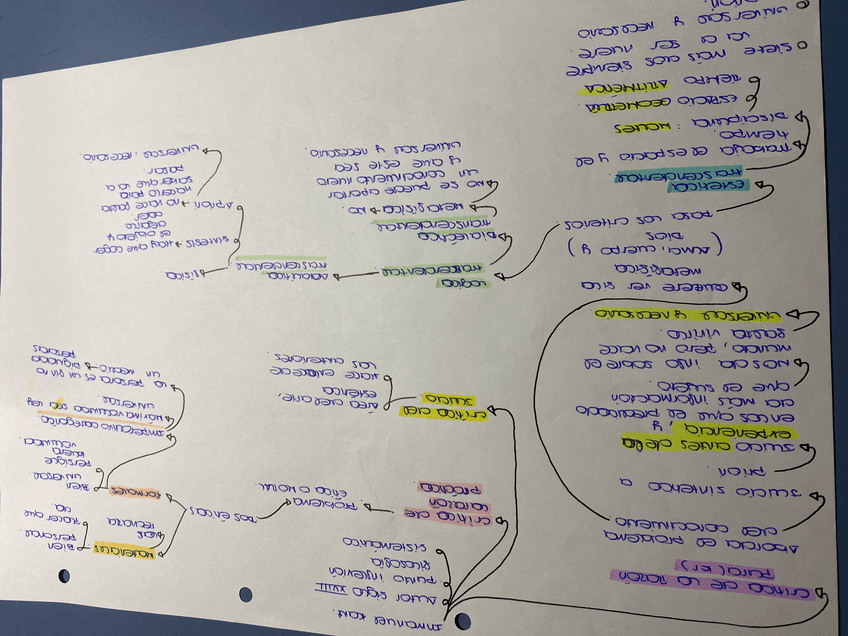 Immanuel Kant.
Autor siglo XVIII
punto inflexión
Filosofía
sistemático
crítica de la razón
Pura (K1)
Aborda el problema
del conocimiento
Juicio sintético a
priori
Juicio antes de la
experiencia, y
en los que el predicado
da más información
que el sujeto.
nos da info sobre el
mundo, pero no hace
falta vivirlo
universal y necesario
quiere ver si la
metafísica
(alma, cuerpo y
Dios)
pasa los criterios
estética
trascendental
trabaja el espacio y el
tiempo.
Disciplina: mates
espacio geometría
tiempo aritmética
siete más dos siempre
va a ser nueve
universal y necesario
lógica
trascendental
Dialéctica
transcendental
Metafísica → no
no se puede aportar
un conocimiento nuevo
y que este sea
universal y necesario.
analítica
trascendental
física
síntesis → hay que coger
el objeto y
dejarlo
caer
A priori → no hace falta
hacerlo para
saber que va a
pasar
universal, necesario.
crítica de
la razón
práctica
problema
ética o moral
Dos éticas
materiales
Bien
personal
hacer que
formales
Bien
universal
persigue
buena
voluntad.
imperativo categórico
universal
la persona es un fin no
un medio → dignidad
personas
crítica del
juicio
área del arte,
estética
hace enlace de
las anteriores